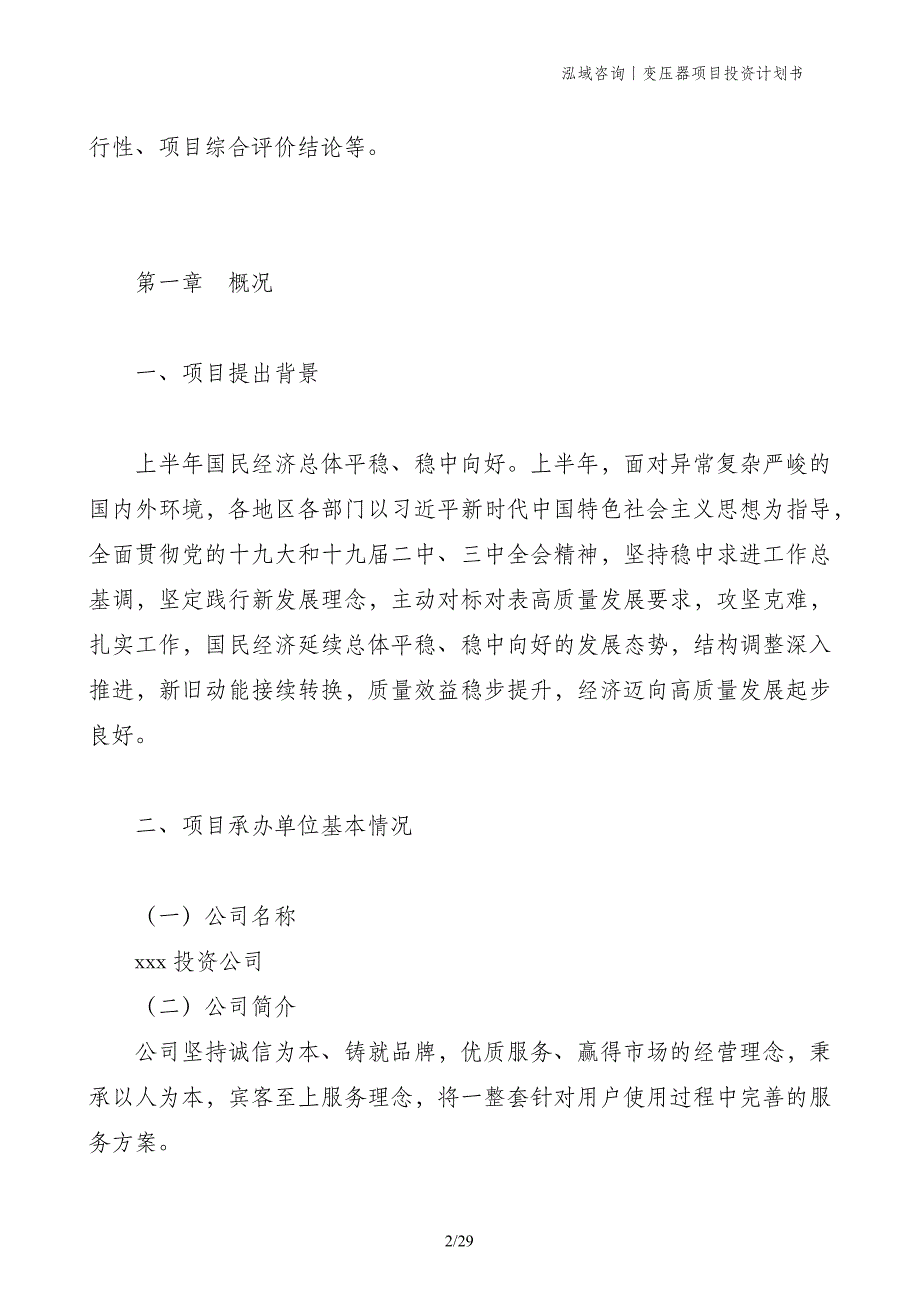 泓域咨询丨变压器项目投资计划书
行性、项目综合评价结论等。
第一章　概况
一、项目提出背景
上半年国民经济总体平稳、稳中向好。上半年，面对异常复杂严峻的
国内外环境，各地区各部门以习近平新时代中国特色社会主义思想为指导，
全面贯彻党的十九大和十九届二中、三中全会精神，坚持稳中求进工作总
基调，坚定践行新发展理念，主动对标对表高质量发展要求，攻坚克难，
扎实工作，国民经济延续总体平稳、稳中向好的发展态势，结构调整深入
推进，新旧动能接续转换，质量效益稳步提升，经济迈向高质量发展起步
良好。
二、项目承办单位基本情况
（一）公司名称
xxx 投资公司
（二）公司简介
公司坚持诚信为本、铸就品牌，优质服务、赢得市场的经营理念，秉
承以人为本，宾客至上服务理念，将一整套针对用户使用过程中完善的服
务方案。
2/29